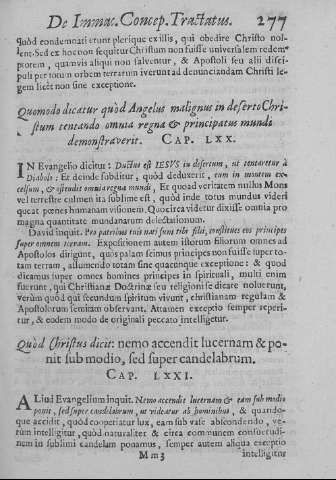 De Immac. Concep. Tractatus. 277
quòd condemnati erunt plerique ex illis, qui obedire Christo nol-
ent. Sed ex hoc non sequitur Christum non fuisse universalem redem-
ptorem, quamvis aliqui non salventur, & Apostoli seu alii disci-
puli per totum orbem terrarum iverunt ad denunciandam Christi le-
gem licèt non sine exceptione.
Quomodo dicatur quòd Angelus malignus in deserto Chri-
stum tentando omnia regna & principatus mundi
demonstraverit. CAP. LXX.
IN Evangelio dicitur: Ductus est IESUS in desertum, ut tentaretur à
Diabolo: Et deinde subditur, quòd deduxerit, eum in montem ex-
celsum, & ostendit omnia regna mundi, Et quoad veritatem nullus Mons
vel terrestre culmen ita sublime est, quòd inde totus mundus videri
queat penes humanam visionem. Quocirca videtur dixisse omnia pro
magna quantitate mundanarum delectationum.
David inquit. Pro patribus tuis nati sunt tibi filii, constitues eos principes
super omnem terram. Expositionem autem istorum filiorum omnes ad
Apostolos dirigunt, quos palam scimus principes non fuisse super to-
tam terram, assumendo totam sine quacunque exceptione: & quod
dicamus super omnes homines principes in spirituali, multi enim
fuerunt, qui Christianæ Doctrinæ seu religioni se dicare noluerunt,
verùm quòd qui secundum spiritum vivunt, christianam regulam &
Apostolorum semitam observant. Attamen exceptio semper reperi-
tur, & eodem modo de originali peccato intelligetur.
Quòd Christus dicit: nemo accendit lucernam & po-
nit sub modio, sed super candelabrum.
CAP. LXXI.
ALiud Evangelium inquit. Nemo accendit lucernam & eam sub modio
ponit, sed super candelabrum, ut videatur ab hominibus, & quando-
que accidit, quòd cooperiatur lux, eam sub vase abscondendo, ve-
rùm intelligitur, quòd naturaliter & circa communem consuetudi-
nem in sublimi candelam ponamus, semper autem aliqua exceptio
Mm 3 intelligitur